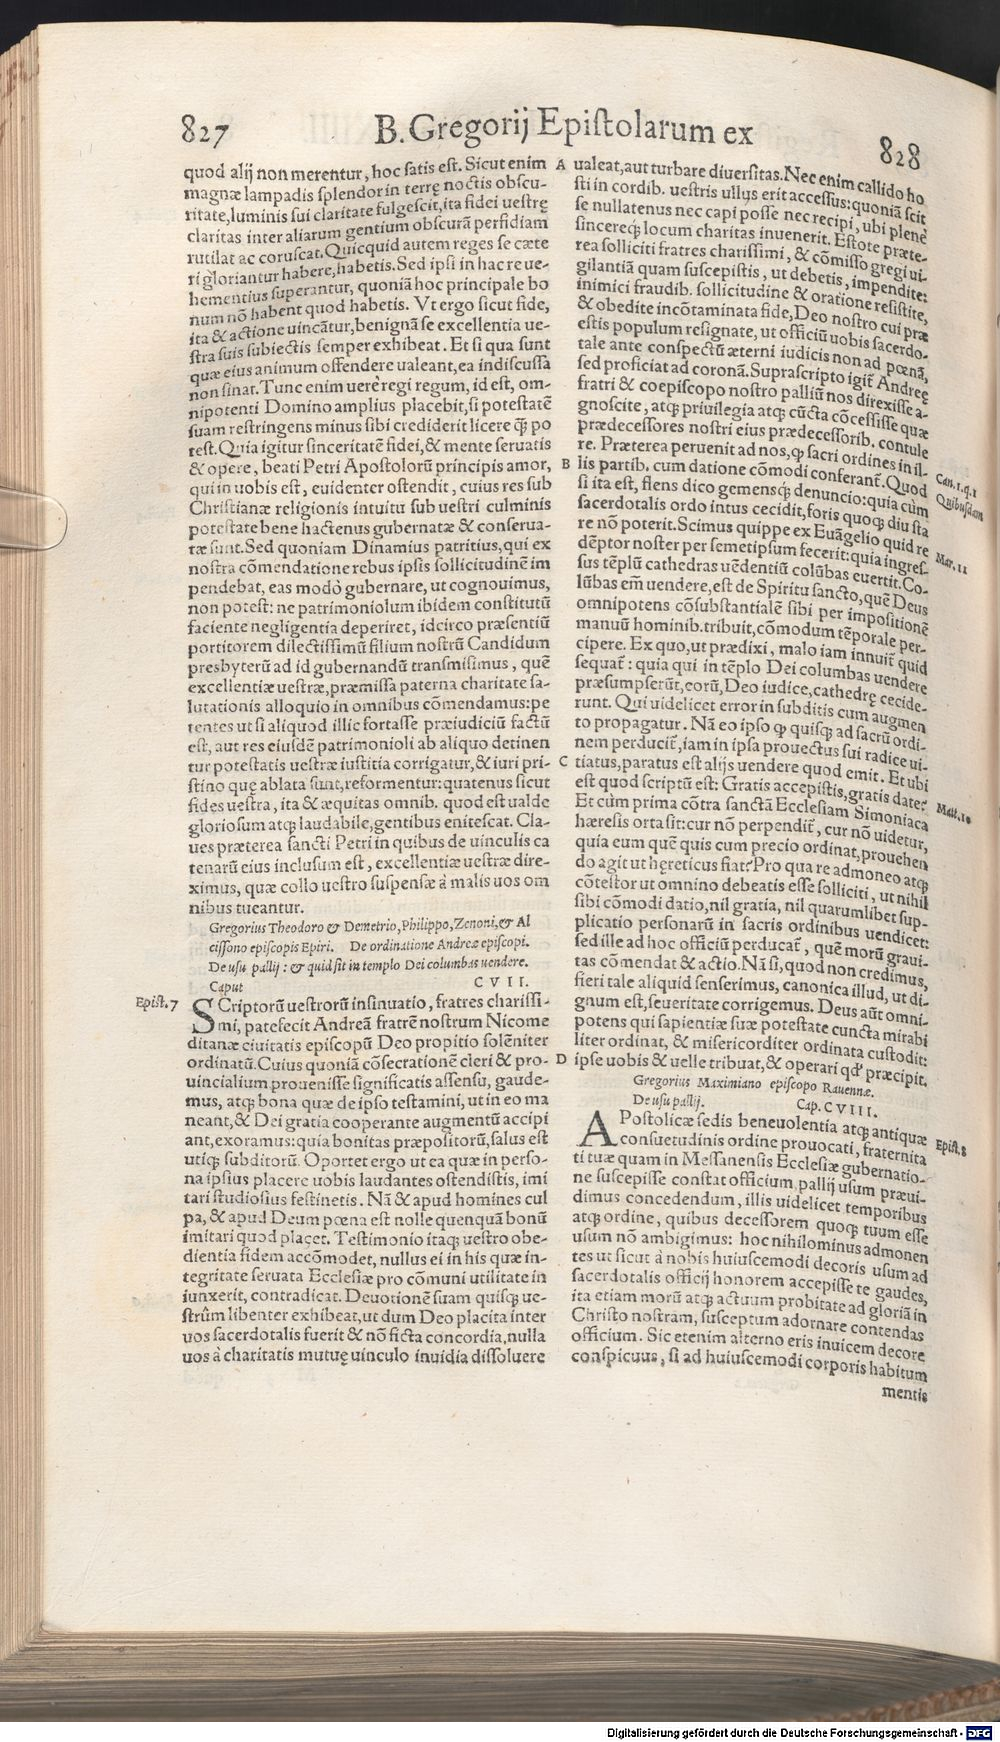 827
B. Gregorij Epistolarum ex
828
quod alij non merentur, hoc satis est. Sicut enim
magnæ lampadis splendor in terrę noctis obscu-
ritate, luminis sui claritate fulgescit, ita fidei uestrę
claritas inter aliarum gentium obscurā perfidiam
rutilat ac coruscat. Quicquid autem reges se cæte
ri gloriantur habere, habetis. Sed ipsi in hac re ue-
hementius superantur, quoniā hoc principale bo
num nō habent quod habetis. Vt ergo sicut fide,
ita & actione uincātur, benignā se excellentia ue-
stra suis subiectis semper exhibeat. Et si qua sunt
quæ eius animum offendere ualeant, ea indiscussa
non sinat. Tunc enim uerè regi regum, id est, om-
nipotenti Domino amplius placebit, si potestatē
suam restringens minus sibi crediderit licere q̄ȝ po
test. Quia igitur sinceritatē fidei, & mente seruatis
& opere, beati Petri Apostolorū principis amor,
qui in uobis est, euidenter ostendit, cuius res sub
Christianæ religionis intuitu sub uestri culminis
potestate bene hactenus gubernatæ & conserua-
tæ sunt. Sed quoniam Dinamius patritius, qui ex
nostra cōmendatione rebus ipsis sollicitudinē im
pendebat, eas modò gubernare, ut cognouimus,
non potest: ne patrimoniolum ibidem constitutū
faciente negligentia deperiret, idcirco præsentiū
portitorem dilectissimū filium nostrū Candidum
presbyterū ad id gubernandū transmisimus, quē
excellentiæ uestræ, præmissa paterna charitate sa-
lutationis alloquio in omnibus cōmendamus: pe
tentes ut si aliquod illic fortasse præiudiciū factū
est, aut res eiusdē patrimonioli ab aliquo detinen
tur potestatis uestræ iustitia corrigatur, & iuri pri-
stino quę ablata sunt, reformentur: quatenus sicut
fides uestra, ita & æquitas omnib. quod est ualde
gloriosum atqȝ laudabile, gentibus enitescat. Cla-
ues præterea sancti Petri in quibus de uinculis ca
tenarū eius inclusum est, excellentiæ uestræ dire-
ximus, quæ collo uestro suspensæ à malis uos om
nibus tueantur.
Gregorius Theodoro & Demetrio, Philippo, Zenoni, & Al
cissono episcopis Epiri. De ordinatione Andreæ episcopi.
De usu pallij: & quid sit in templo Dei columbas uendere.
Caput CVII.
Epist. 7
SCriptorū uestrorū insinuatio, fratres charissi-
mi, patefecit Andreā fratrē nostrum Nicome
ditanæ ciuitatis episcopū Deo propitio solēniter
ordinatū. Cuius quoniā cōsecrationē cleri & pro-
uincialium prouenisse significatis assensu, gaude-
mus, atqȝ bona quæ de ipso testamini, ut in eo ma
neant, & Dei gratia cooperante augmentū accipi
ant, exoramus: quia bonitas præpositorū, salus est
utiqȝ subditorū. Oportet ergo ut ea quæ in perso-
na ipsius placere uobis laudantes ostendistis, imi
tari studiosius festinetis. Nā & apud homines cul
pa, & apud Deum pœna est nolle quenquā bonū
imitari quod placet. Testimonio itaqȝ uestro obe-
dientia fidem accōmodet, nullus ei in his quæ in-
tegritate seruata Ecclesiæ pro cōmuni utilitate in
iunxerit, contradicat. Deuotionē suam quisqȝ ue-
strûm libenter exhibeat, ut dum Deo placita inter
uos sacerdotalis fuerit & nō ficta concordia, nulla
uos à charitatis mutuę uinculo inuidia dissoluere
A ualeat, aut turbare diuersitas. Nec enim callido ho
sti in cordib. uestris ullus erit accessus: quoniā scit
se nullatenus nec capi posse nec recipi, ubi plenè
sincereqȝ locum charitas inuenerit. Estote præte-
rea solliciti fratres charissimi, & cōmisso gregi ui-
gilantiā quam suscepistis, ut debetis, impendite:
inimici fraudib. sollicitudine & oratione resistite,
& obedite incōtaminata fide, Deo nostro cui præ
estis populum resignate, ut officiū uobis sacerdo-
tale ante conspectū æterni iudicis non ad pœnā,
sed proficiat ad coronā. Suprascripto igit̄ Andreę
fratri & coepiscopo nostro palliū nos direxisse a-
gnoscite, atqȝ priuilegia atqȝ cūcta cōcessisse quæ
prædecessores nostri eius prædecessorib. contule
re. Præterea peruenit ad nos, qȝ sacri ordines in il-
B lis partib. cum datione cōmodi conferant̄. Quod
si ita est, flens dico gemensqȝ denuncio: quia cùm
sacerdotalis ordo intus cecidit, foris quoqȝ diu sta
re nō poterit. Scimus quippe ex Euāgelio quid re
dēptor noster per semetipsum fecerit: quia ingres-
sus tēplū cathedras uēdentiū colūbas euertit. Co-
lūbas em̄ uendere, est de Spiritu sancto, quē Deus
omnipotens cōsubstantialē sibi per impositionē
manuū hominib. tribuit, cōmodum tēporale per-
cipere. Ex quo, ut prædixi, malo iam innuit̄ quid
sequat̄: quia qui in tēplo Dei columbas uendere
præsumpserūt, eorū, Deo iudice, cathedrę cecide-
runt. Qui uidelicet error in subditis cum augmen
to propagatur. Nā eo ipso qȝ quisqȝ ad sacrū ordi-
nem perducit̄, iam in ipsa prouectus sui radice ui-
C tiatus, paratus est alijs uendere quod emit. Et ubi
est quod scriptū est: Gratis accepistis, gratis date?
Et cùm prima cōtra sanctā Ecclesiam Simoniaca
hæresis orta sit: cur nō perpendit̄, cur nō uidetur,
quia eum quē quis cum precio ordinat, prouehen
do agit ut hęreticus fiat? Pro qua re admoneo atqȝ
cōtestor ut omnino debeatis esse solliciti, ut nihil
sibi cōmodi datio, nil gratia, nil quarumlibet sup-
plicatio personarū in sacris ordinibus uendicet:
sed ille ad hoc officiū perducat̄, quē morū graui-
tas cōmendat & actio. Nā si, quod non credimus,
fieri tale aliquid senserimus, canonica illud, ut di-
gnum est, seueritate corrigemus. Deus aūt omni-
potens qui sapientiæ suæ potestate cuncta mirabi
liter ordinat, & misericorditer ordinata custodit:
D ipse uobis & uelle tribuat, & operari qđ præcipit.
Can. 1. q. 1
Quibusdam
Mar. 11
Matt. 10
Gregorius Maximiano episcopo Rauennæ.
De usu pallij. Cap. CVIII.
APostolicæ sedis beneuolentia atqȝ antiquæ
consuetudinis ordine prouocati, fraternita
ti tuæ quam in Messanensis Ecclesiæ gubernatio-
ne suscepisse constat officium, pallij usum præui-
dimus concedendum, illis uidelicet temporibus
atqȝ ordine, quibus decessorem quoqȝ tuum esse
usum nō ambigimus: hoc nihilominus admonen
tes ut sicut à nobis huiuscemodi decoris usum ad
sacerdotalis officij honorem accepisse te gaudes,
ita etiam morū atqȝ actuum probitate ad gloriā in
Christo nostram, susceptum adornare contendas
officium. Sic etenim alterno eris inuicem decore
conspicuus, si ad huiuscemodi corporis habitum
mentis
Epist. 8
Digitalisierung gefördert durch die Deutsche Forschungsgemeinschaft - DFG